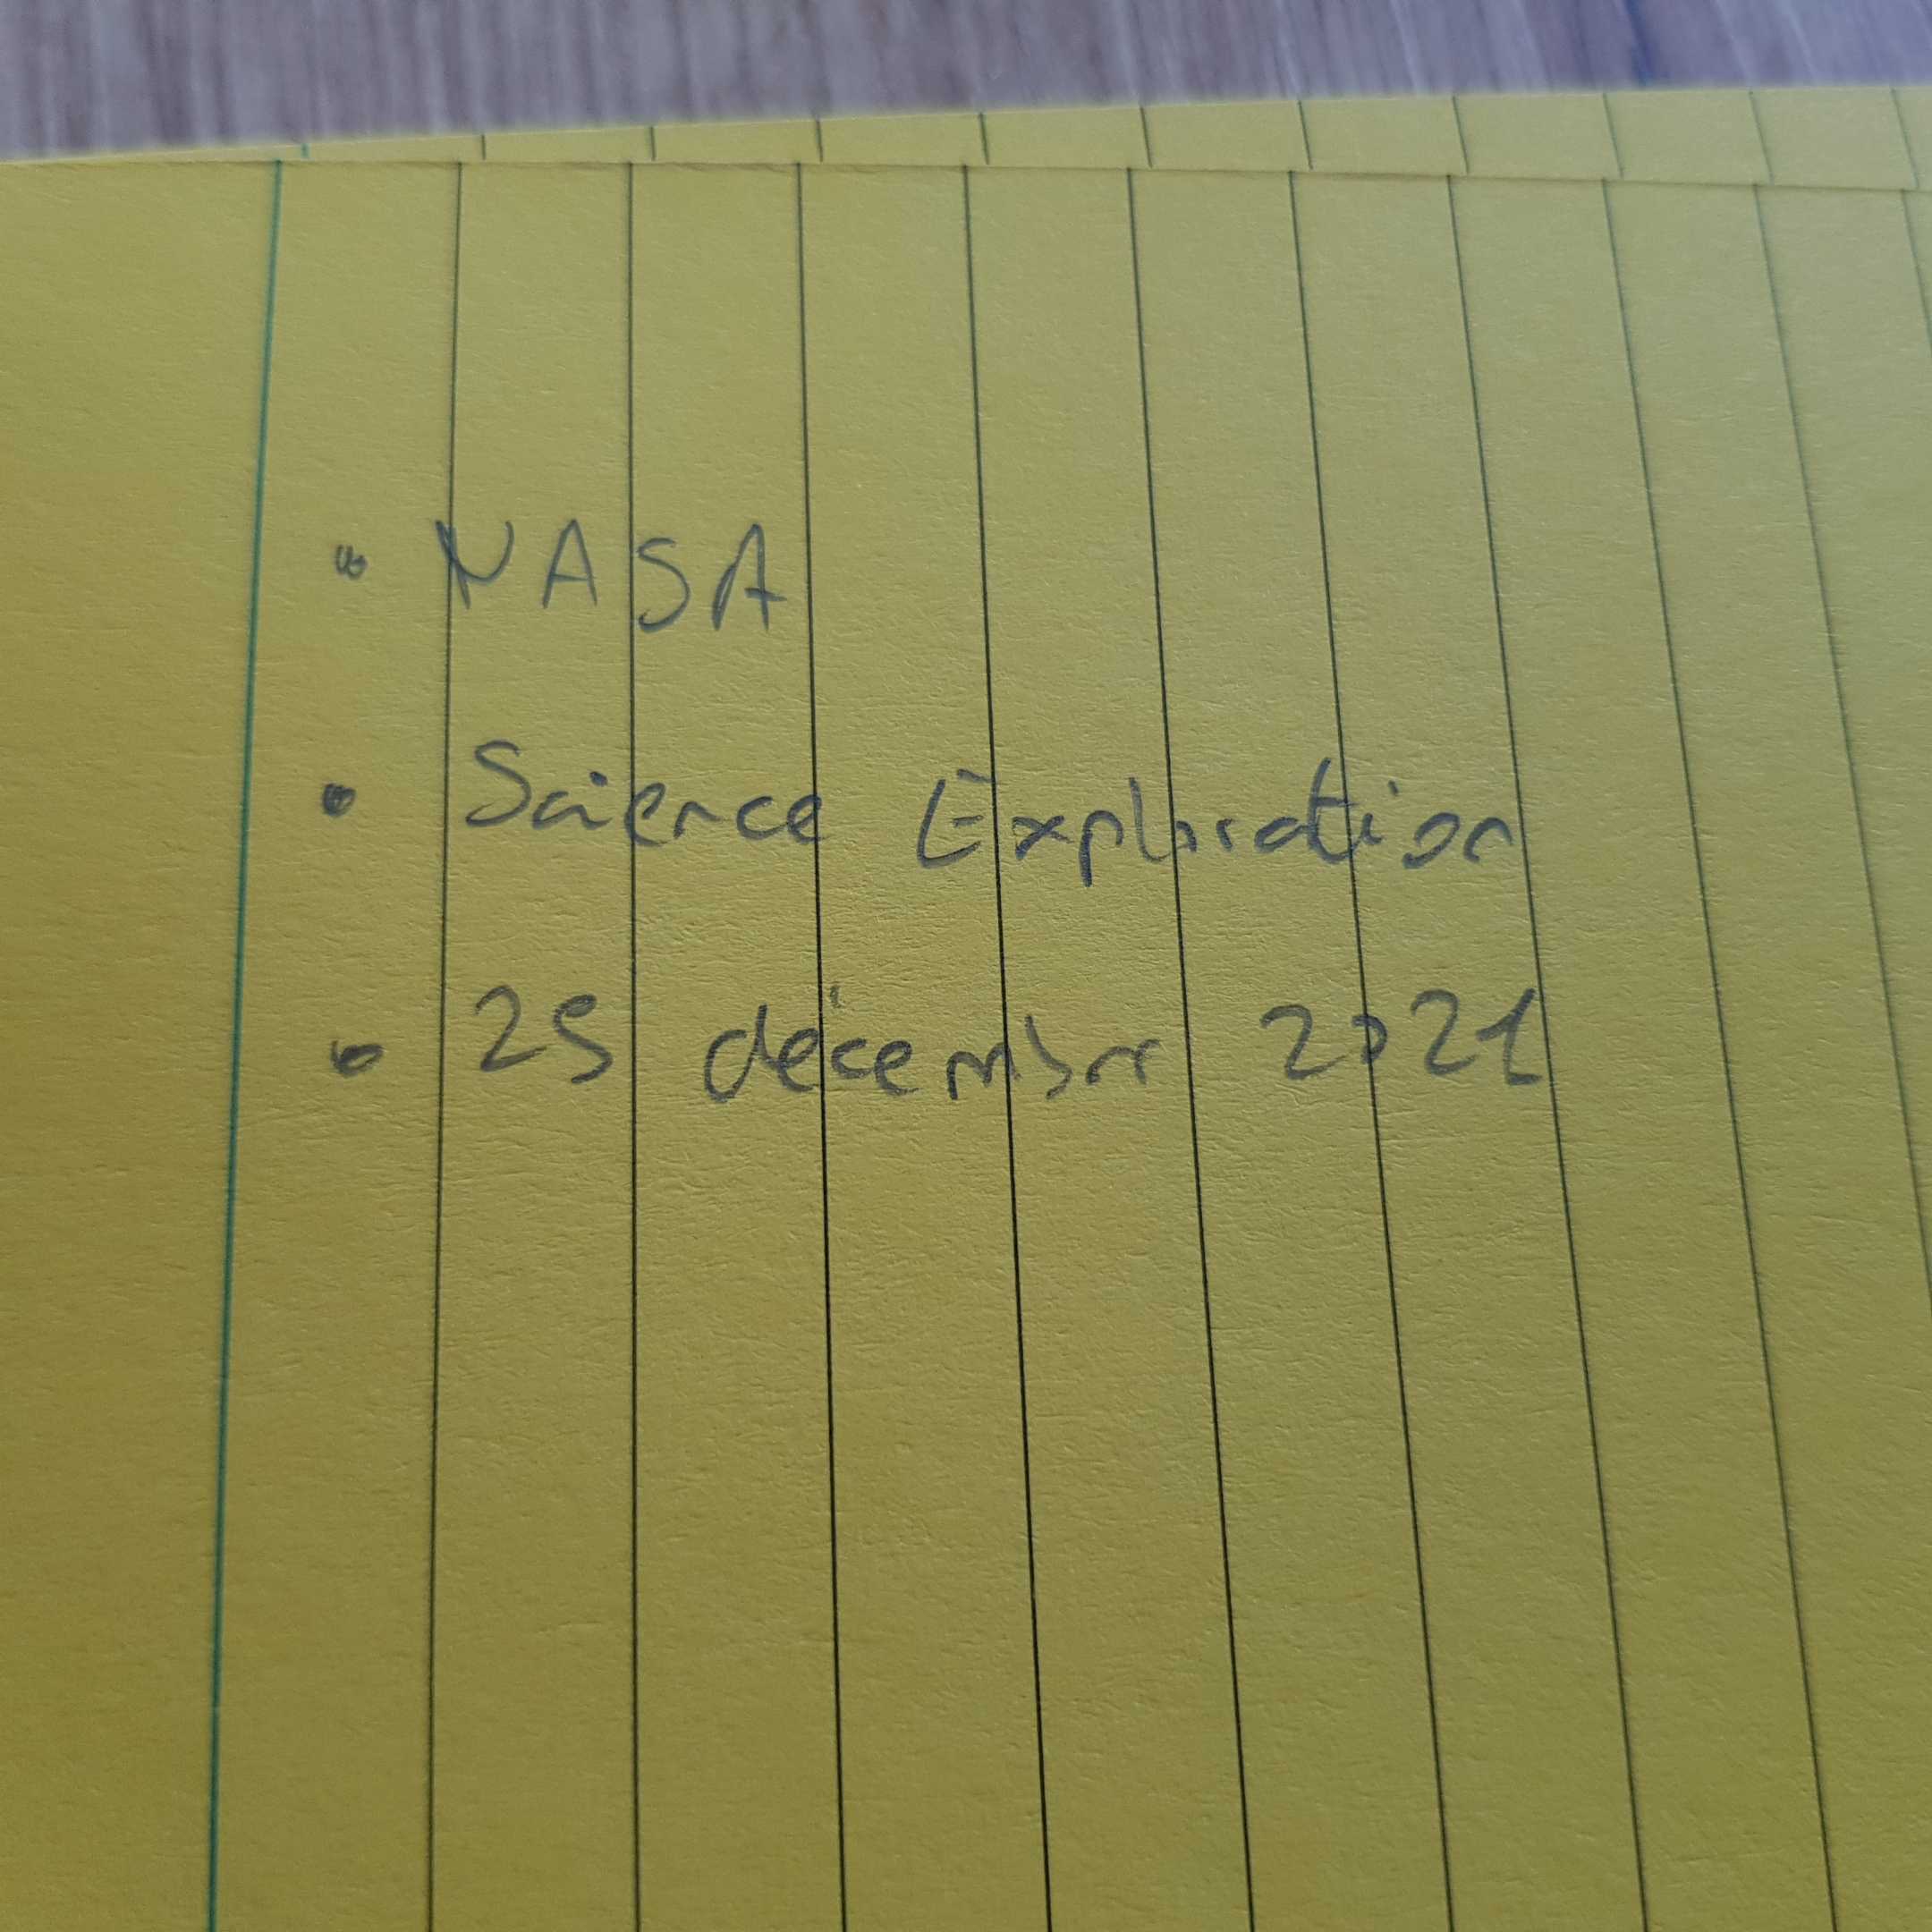 • NASA
• Science Exploration
• 25 décembre 2021